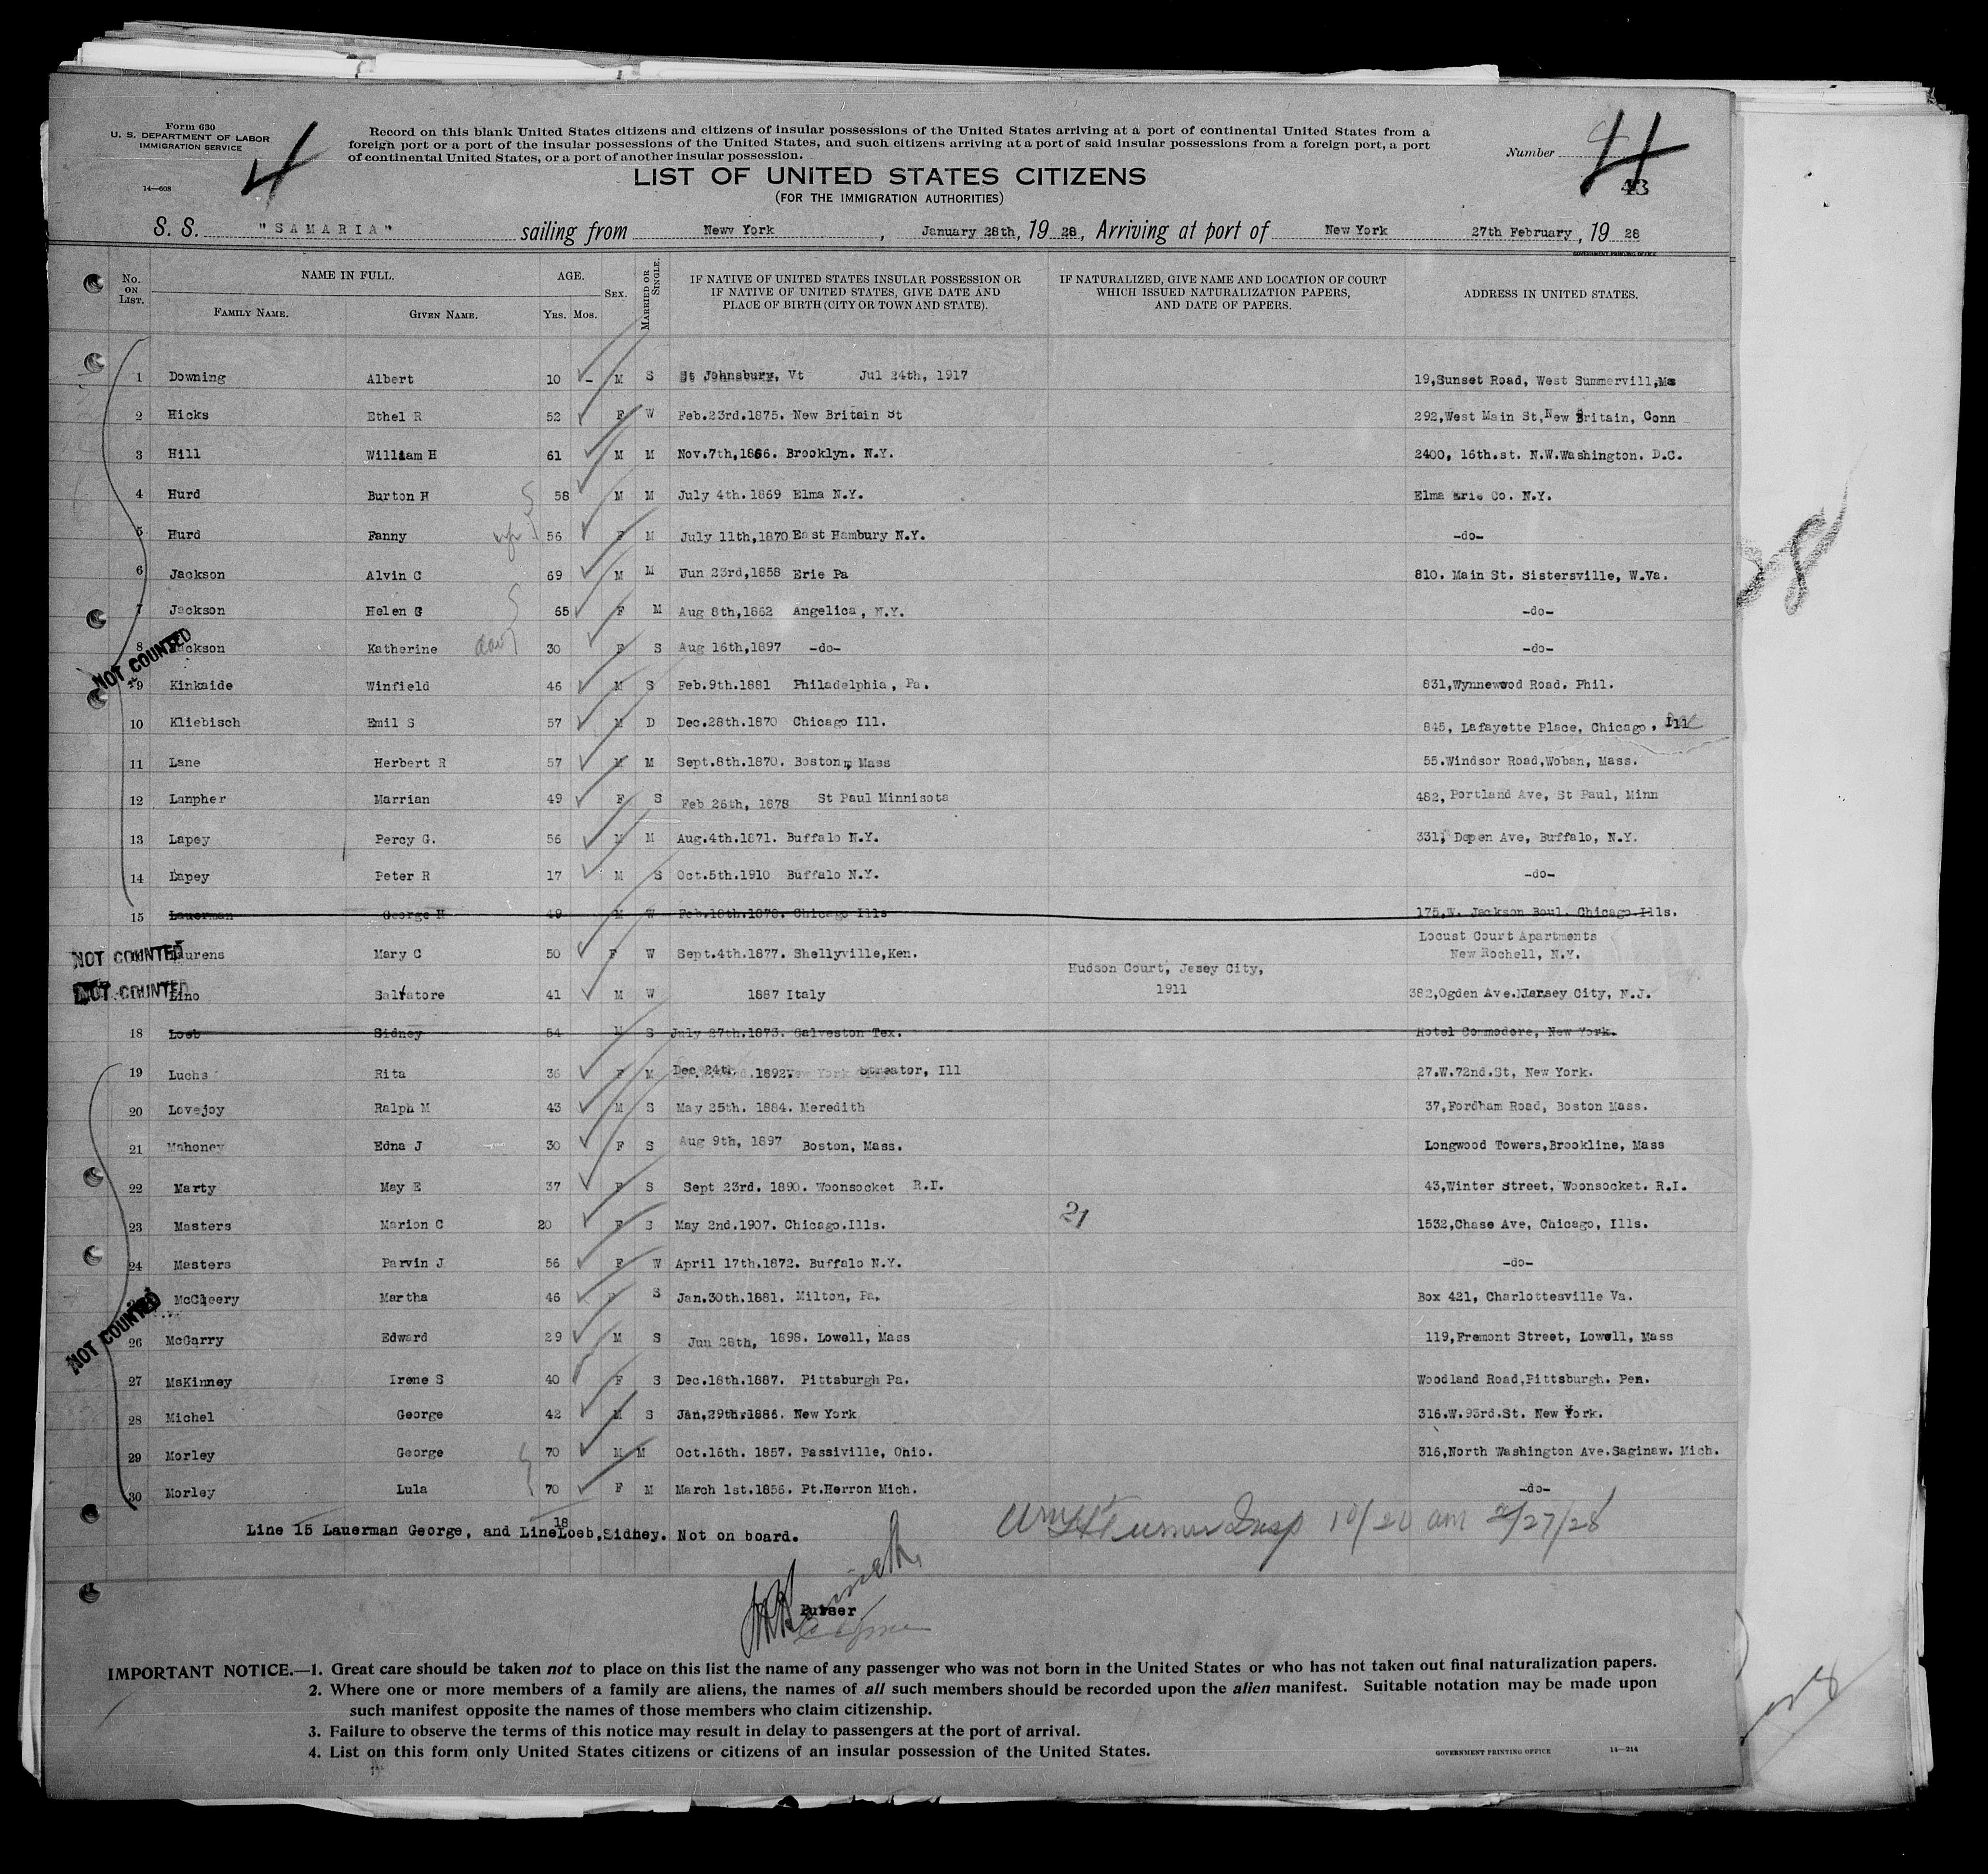 Form 630
U. S. DEPARTMENT OF LABOR
IMMIGRATION SERVICE
14—608
4
Record on this blank United States citizens and citizens of insular possessions of the United States arriving at a port of continental United States from a
foreign port or a port of the insular possessions of the United States, and such citizens arriving at a port of said insular possessions from a foreign port, a port
of continental United States, or a port of another insular possession.
Number 4
43
LIST OF UNITED STATES CITIZENS
(FOR THE IMMIGRATION AUTHORITIES)
S. S. "SAMARIA" sailing from New York, January 28th, 19 28, Arriving at port of New York 27th February, 19 28
GOVERNMENT PRINTING OFFICE
No. ON LIST. NAME IN FULL. FAMILY NAME. GIVEN NAME. AGE. YRS. MOS. SEX. MARRIED OR SINGLE. IF NATIVE OF UNITED STATES INSULAR POSSESSION OR IF NATIVE OF UNITED STATES, GIVE DATE AND PLACE OF BIRTH (CITY OR TOWN AND STATE). IF NATURALIZED, GIVE NAME AND LOCATION OF COURT WHICH ISSUED NATURALIZATION PAPERS, AND DATE OF PAPERS. ADDRESS IN UNITED STATES.
1 Downing Albert 10 - M S St Johnsbury, Vt Jul 24th, 1917 19,Sunset Road, West Summervill,Ms
2 Hicks Ethel R 52 F W Feb.23rd.1875. New Britain St 292,West Main St,New Britain, Conn
3 Hill William H 61 M M Nov.7th,1866. Brooklyn. N.Y. 2400, 16th.st. N.W.Washington. D.C.
4 Hurd Burton H 58 M M July 4th. 1869 Elma N.Y. Elma Erie Co. N.Y.
5 Hurd Fanny 56 F M July 11th,1870 East Hambury N.Y. -do-
6 Jackson Alvin C 69 M M Jun 23rd,1858 Erie Pa 810. Main St. Sistersville, W.Va.
7 Jackson Helen G 65 F M Aug 8th,1862 Angelica, N.Y. -do-
8 Jackson Katherine dau 30 F S Aug 16th,1897 -do- -do-
NOT COUNTED
9 Kinkaide Winfield 46 M S Feb.9th.1881 Philadelphia, Pa. 831,Wynnewood Road. Phil.
10 Kliebisch Emil S 57 M D Dec.28th.1870 Chicago Ill. 845, Lafayette Place, Chicago, Ill
11 Lane Herbert R 57 M M Sept.8th.1870. Boston, Mass 55.Windsor Road,Woban, Mass.
12 Lanpher Marrian 49 F S Feb 26th, 1878 St Paul Minnisota 482, Portland Ave, St Paul, Minn
13 Lapey Percy G. 56 M M Aug.4th.1871. Buffalo N.Y. 331, Depen Ave, Buffalo, N.Y.
14 Lapey Peter R 17 M S Oct.5th.1910 Buffalo N.Y. -do-
15 Lauerman George H 49 M W Feb.18th.1878. Chicago Ills 175,W. Jackson Boul. Chicago.Ills.
NOT COUNTED Laurens Mary C 50 F W Sept.4th.1877. Shellyville,Ken. Locust Court Apartments New Rochell, N.Y.
NOT COUNTED Lino Salvatore 41 M W 1887 Italy Hudson Court, Jesey City, 1911 382,Ogden Ave. Jersey City, N.J.
18 Loeb Sidney 54 M S July 27th.1873. Galveston Tex. Hotel Commodore, New York.
19 Luchs Rita 36 F M Dec 24th .1892 Streator, Ill 27.W.72nd.St, New York.
20 Lovejoy Ralph M 43 M S May 25th. 1884. Meredith 37,Fordham Road, Boston Mass.
21 Mahoney Edna J 30 F S Aug 9th, 1897 Boston, Mass. Longwood Towers,Brookline, Mass
22 Marty May E 37 F S Sept 23rd. 1890. Woonsocket R.I. 43,Winter Street, Woonsocket. R.I.
23 Masters Marion C 20 F S May 2nd.1907. Chicago.Ills. 21 1532,Chase Ave, Chicago, Ills.
24 Masters Parvin J 56 F W April 17th.1872. Buffalo N.Y. -do-
McCleery Martha 46 F S Jan.30th.1881. Milton, Pa. Box 421, Charlottesville Va.
NOT COUNTED
26 McGarry Edward 29 M S Jun 28th, 1898. Lowell, Mass 119,Fremont Street, Lowell, Mass
27 MsKinney Irene S 40 F S Dec.18th.1887. Pittsburgh Pa. Woodland Road,Pittsburgh. Pen.
28 Michel George 42 M S Jan,29th.1886. New York 316.W.93rd.St. New York.
29 Morley George 70 M M Oct.16th. 1857. Passiville, Ohio. 316,North Washington Ave.Saginaw. Mich.
30 Morley Lula 70 F M March 1st.1856. Pt.Herron Mich. -do-
Line 15 Lauerman George, and Line 18 Loeb,Sidney. Not on board.
Wm H Turner Insp 10/20 am 2/27/28
Purser
IMPORTANT NOTICE.—1. Great care should be taken not to place on this list the name of any passenger who was not born in the United States or who has not taken out final naturalization papers.
2. Where one or more members of a family are aliens, the names of all such members should be recorded upon the alien manifest. Suitable notation may be made upon
such manifest opposite the names of those members who claim citizenship.
3. Failure to observe the terms of this notice may result in delay to passengers at the port of arrival.
4. List on this form only United States citizens or citizens of an insular possession of the United States.
GOVERNMENT PRINTING OFFICE 14—214